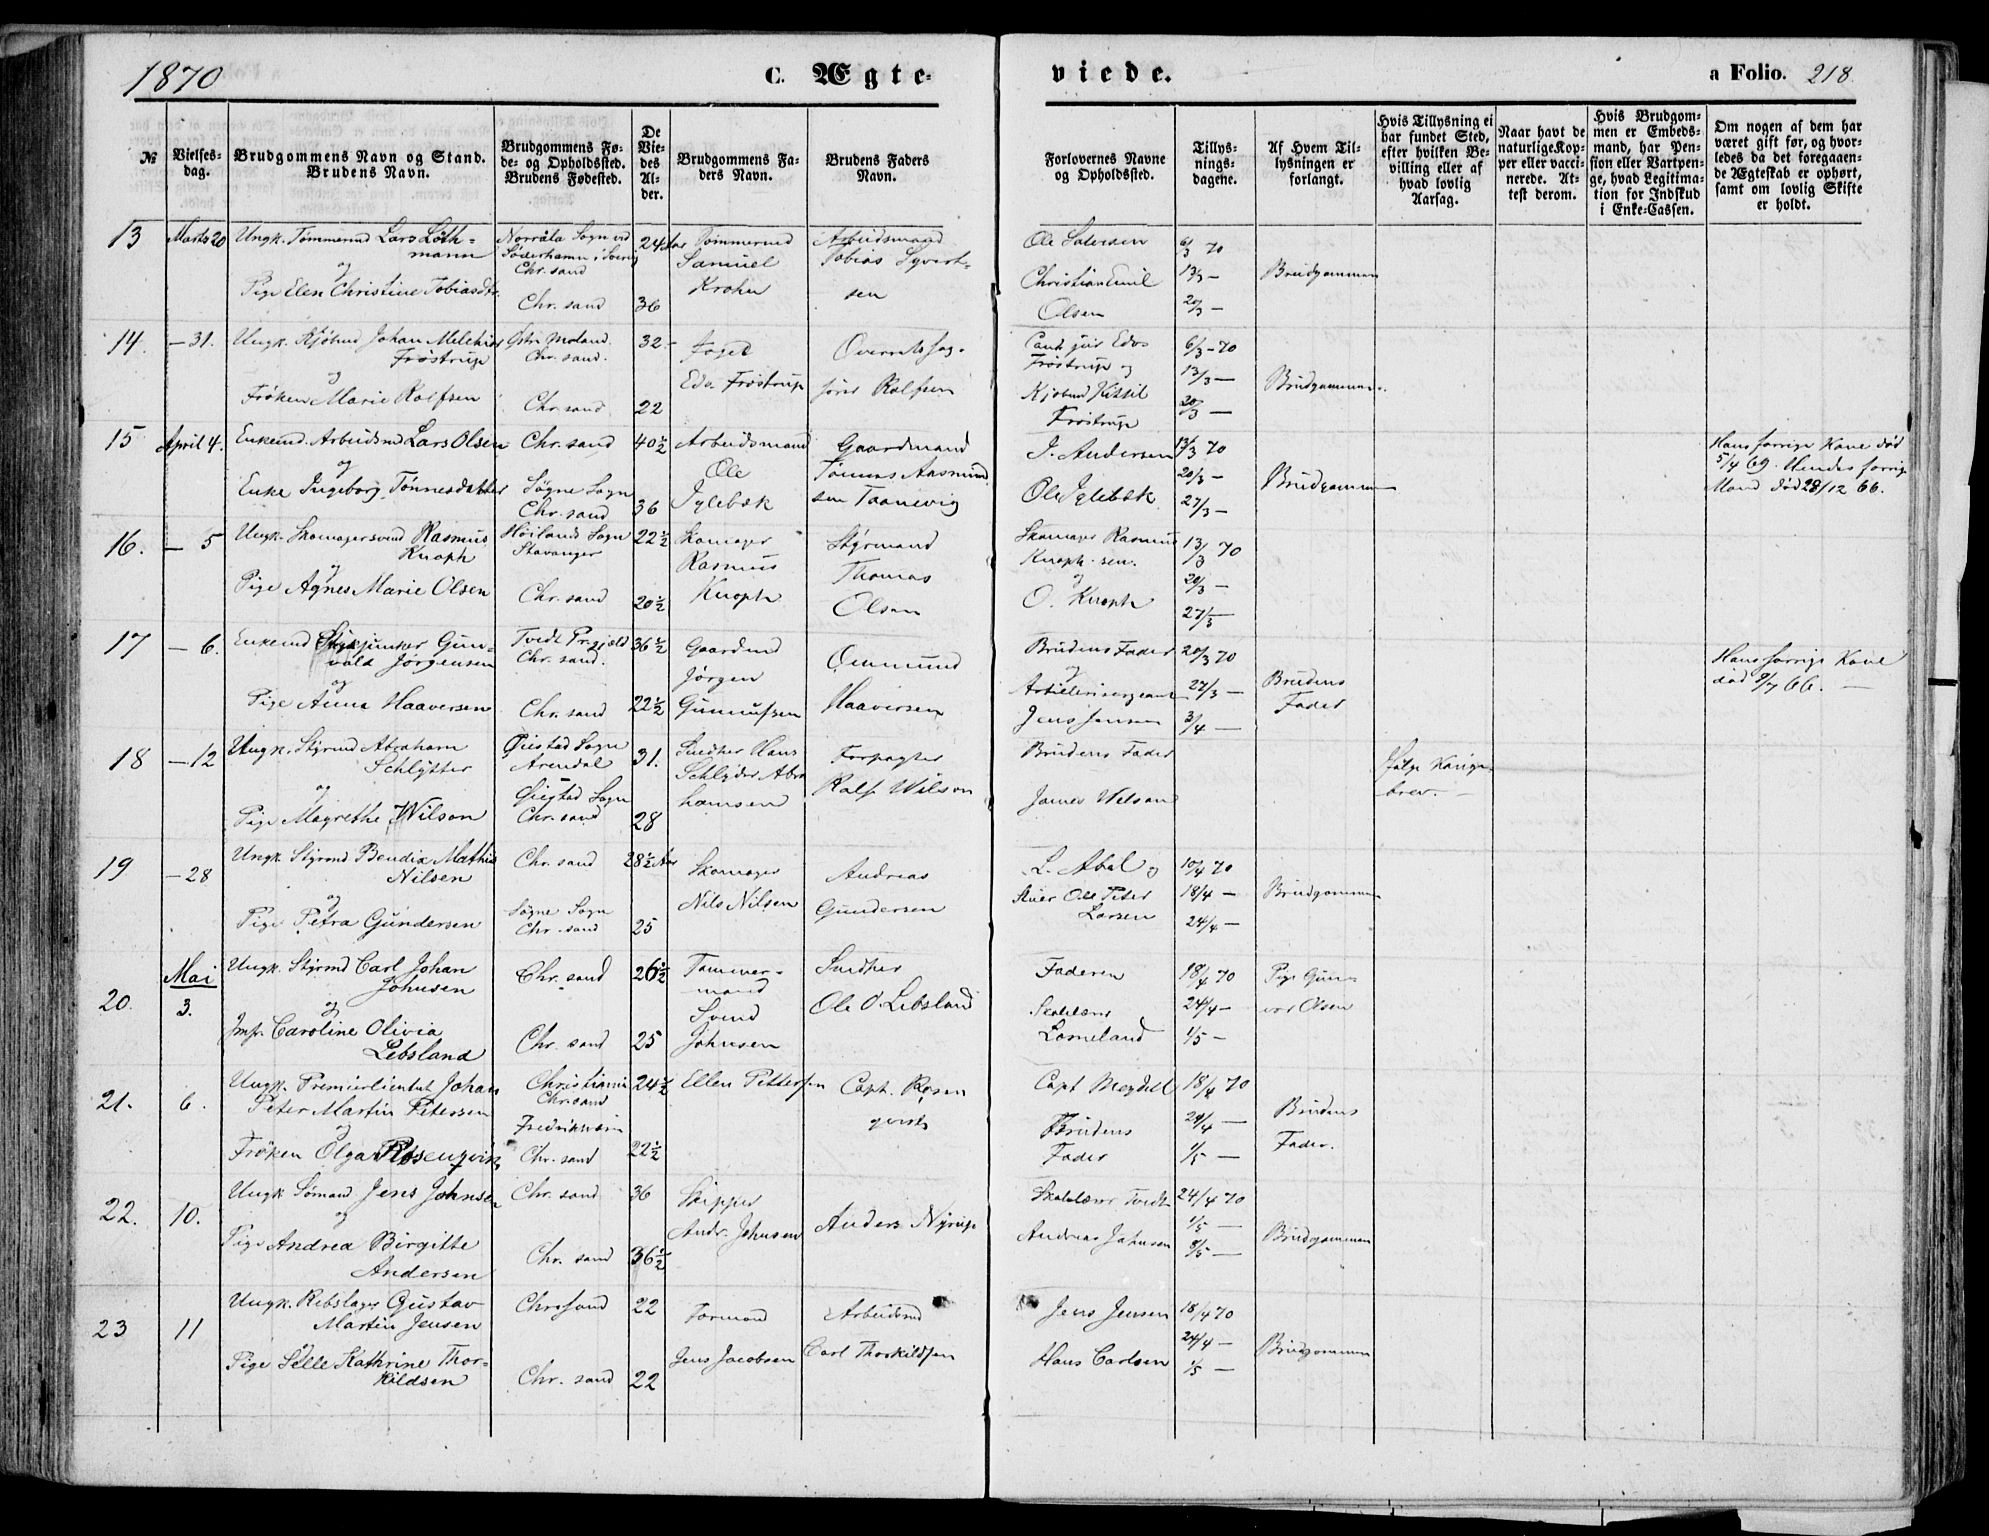 1870
C. Ægte-
viede.
a Folio. 218.
No
Vielses-
dag.
Brudgommens Navn og Stand.
Brudens Navn.
Brudgommens Fø-
de- og Opholdssted.
Brudens Fødested.
De
Vie-
des
Al-
der.
Brudgommens Fa-
ders Navn.
Brudens Faders
Navn.
Forlovernes Navne
og Opholdssted.
Tillys-
nings-
dagene.
Af Hvem Til-
lysningen er
forlangt.
Hvis Tillysning ei
har fundet Sted,
efter hvilken Be-
villing eller af
hvad lovlig
Aarsag.
Naar havt de
naturlige Kop-
per eller vacci-
nerede. At-
test derom.
Hvis Brudgom-
men er Embeds-
mand, har Pen-
sion eller Vartpen-
ge, hvad Legitima-
tion for Indskud
i Enke-Cassen.
Om nogen af dem har
været gift før, og hvor-
ledes da det foregaaen-
de Ægteskab er ophørt,
samt om lovlig Skifte
er holdt.
13 Marts 20
Ungk. Tømmermd Lars Løth-
mann
og
Pige Elen Christine Tobiasdtr.
Norrala Sogn ved
Söderhamn i Sverig
Chr.sand
Chr. sand
24 Aar
36
Tømmermd
Samuel
Krohn
Arbeidsmand
Tobias Syvert-
sen
Ole Salvesen
Christian Emil
Olsen
6/3 70
13/3 -
20/3 -
Brudgommen
14. - 31.
Ungk. Kjøbmd Johan Melchior
Frøstrup
og
Frøken Marie Rolfsen
Østr. Moland
Chr. sand.
Chr. sand
32 -
22
Foged
Edv. Frøstrup
Overretssag-
fører Rolfsen
Cand jur Edv.
Frøstrup og
Kjøbmd Kittil
Frøstrup
6/3 - 70
13/3 -
20/3 -
Brudgommen.
15 April 4.
Enkemd. Arbeidsmd Lars Olsen
og
Enke Ingeborg Tønnesdatter
Chr. sand
Søgne Sogn
Chr. sand
40 1/2
36
Arbeidsmand
Ole
Iglebæk
Gaardmand
Tønnes Aasmund
sen Taanevig
J. Andersen
Ole Iglebæk
13/3 70
20/3 -
27/3 -
Brudgommen
Hans forrige Kone død
5/4 69. Hendes forrige
Mand død 28/12 66.
16. - 5
Ungk. Skomagersvend Rasmus
Knoph
og
Pige Agnes Marie Olsen
Høilands Sogn
Stavanger
Chr. sand
22 1/2
20 1/2
Skomager
Rasmus
Knoph
Styrmand
Thomas
Olsen
Skomager Rasmus
Knoph sen.
og
O. Knoph
13/3 70
20/3 -
27/3 -
17 - 6.
Enkemd Stykjunker Gun-
vald Jørgensen
og
Pige Anna Haaversen
Tvedt Prgjæld
Chr. sand.
Chr. sand
36 1/2
22 1/2
Gaardmd
Jørgen
Gunnufsen
Omund
Haaversen
Brudens Fader
og
Artillerisergeant
Jens Jensen
20/3 70
27/3 -
3/4 -
Brudens
Fader
Hans forrige Kone
død 9/7 66. -
18 - 12
Ungk. Styrmd Abraham
Schlytter
og
Pige Magrethe Wilson
Øiestad Sogn
Arendal
Øiestad Sogn
Chr. sand
31.
28
Snedker Hans
Schlyder Abra
hamsen
Forpagter
Ralf Wilson
Brudens Fader
James Wilson
Ifølge Konge-
brev. -
19 - 28
Ungk Styrmd Bendix Mathias
Nilsen
og
Pige Petra Gundersen
Chr. sand
Søgne Sogn
Chr. sand
28 1/2 Aar
25
Skomager
Nils Nilsen
Andreas
Gundersen
L. Abel og
Stuer Ole Peter
Larsen
10/4 70
18/4 -
24/4 -
Brudgommen
20. Mai
3.
Ungk. Styrmd Carl Johan
Johnsen
og
Jmf. Caroline Olivia
Lebsland
Chr. sand
Chr. sand
26 1/2
25
Tømmer-
mand
Svend
Johnsen
Snedker
Ole O. Lebsland
Faderen
Skolelærer
Lomeland
18/4 70
24/4 -
1/5 -
Pige Gun-
vor Olsen
21. 6.
Ungk. Premierlieutnt Johan
Peter Martin Petersen
og
Frøken Olga Rosenqvist
Christiania
Chr.sand
Fredriksværn
Chr. sand
24 1/2
22 1/2
Ellen Pettersen
Capt. Rosen
qvist
Capt Meydell
Brudens
Fader
18/4 70
24/4 -
1/5 -
Brudens
Fader.
22. 10.
Ungk Sømand Jens Johnsen
og
Pige Andrea Birgitte
Andersen
Chr. sand
Chr. sand
36
36 1/2
Skipper
Andr. Johnsen
Anders Nyrup
Skolelærer Tvedt
Andreas Johnsen
24/4 70
1/5 -
8/5 -
Brudgommen
23 11
Ungk. Rebslager Gustav
Martin Jensen
og
Pige Selle Kathrine Thor-
kildsen
Chr. sand
Chr. sand
22
22
Formand
Jens Jacobsen
Arbeidsmd
Carl Thorkildsen
Jens Jensen
Hans Carlsen
18/4 70
24/4 -
1/5 -
Brudgommen